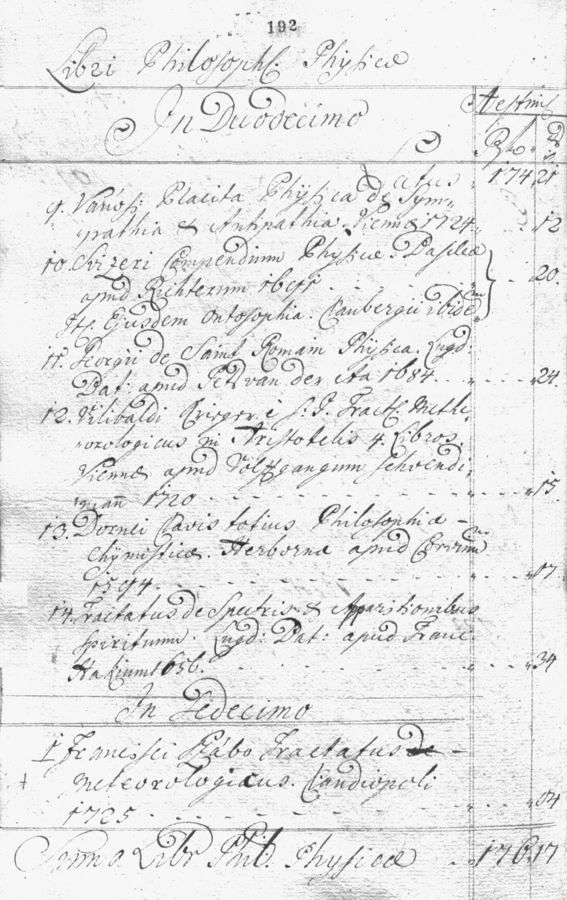 192
Libri Philosoph: Physicæ
Æstim
In Duodecimo
latus 174 21
9. Varios: Placita Physica de Sym-
pathia & Antipathia. Viennæ 1724 12
10. Compendium Physicæ. Basileæ
apud Richterum 20
It: Ejusdem Ontosophia. Claubergii ibidem
11. Georgii de Saint Romain Physica. Lugd:
Bat: apud Petr van der Aa 1684 24
12. Vilibaldi Krieger è S: J. Tract: Methe-
orologicus in Aristotelis 4 Libros.
Viennæ apud Volffgangum Schvendi-
mañ 1720 15
13. Dornei Clavis totius Philosophiæ
Chymisticæ. Herbornæ apud Corvinum
1594 17
14. Tractatus de Spectris & Apparitionibus
Spirituum. Lugd: Bat: apud Franc
Hakium 1656. 34
In Sedecimo
1 Francisci Szabo Tractatus
Meteorologicus. Claudiopoli
1725 04
Summa Libr Phil. Physicæ 176 17